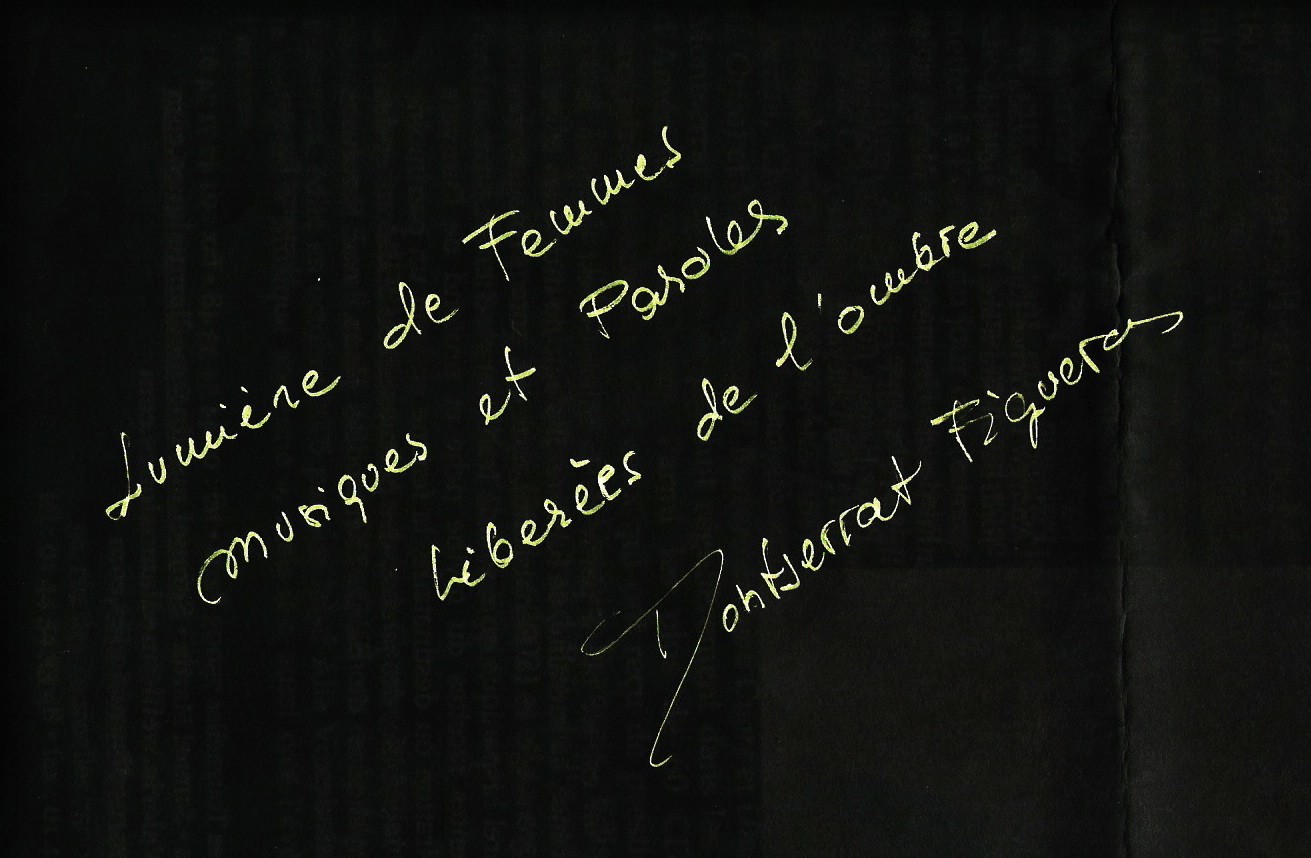 Lumière de Femmes
musiques et Paroles
Liberèes de l'ombre
Montserrat Figueras